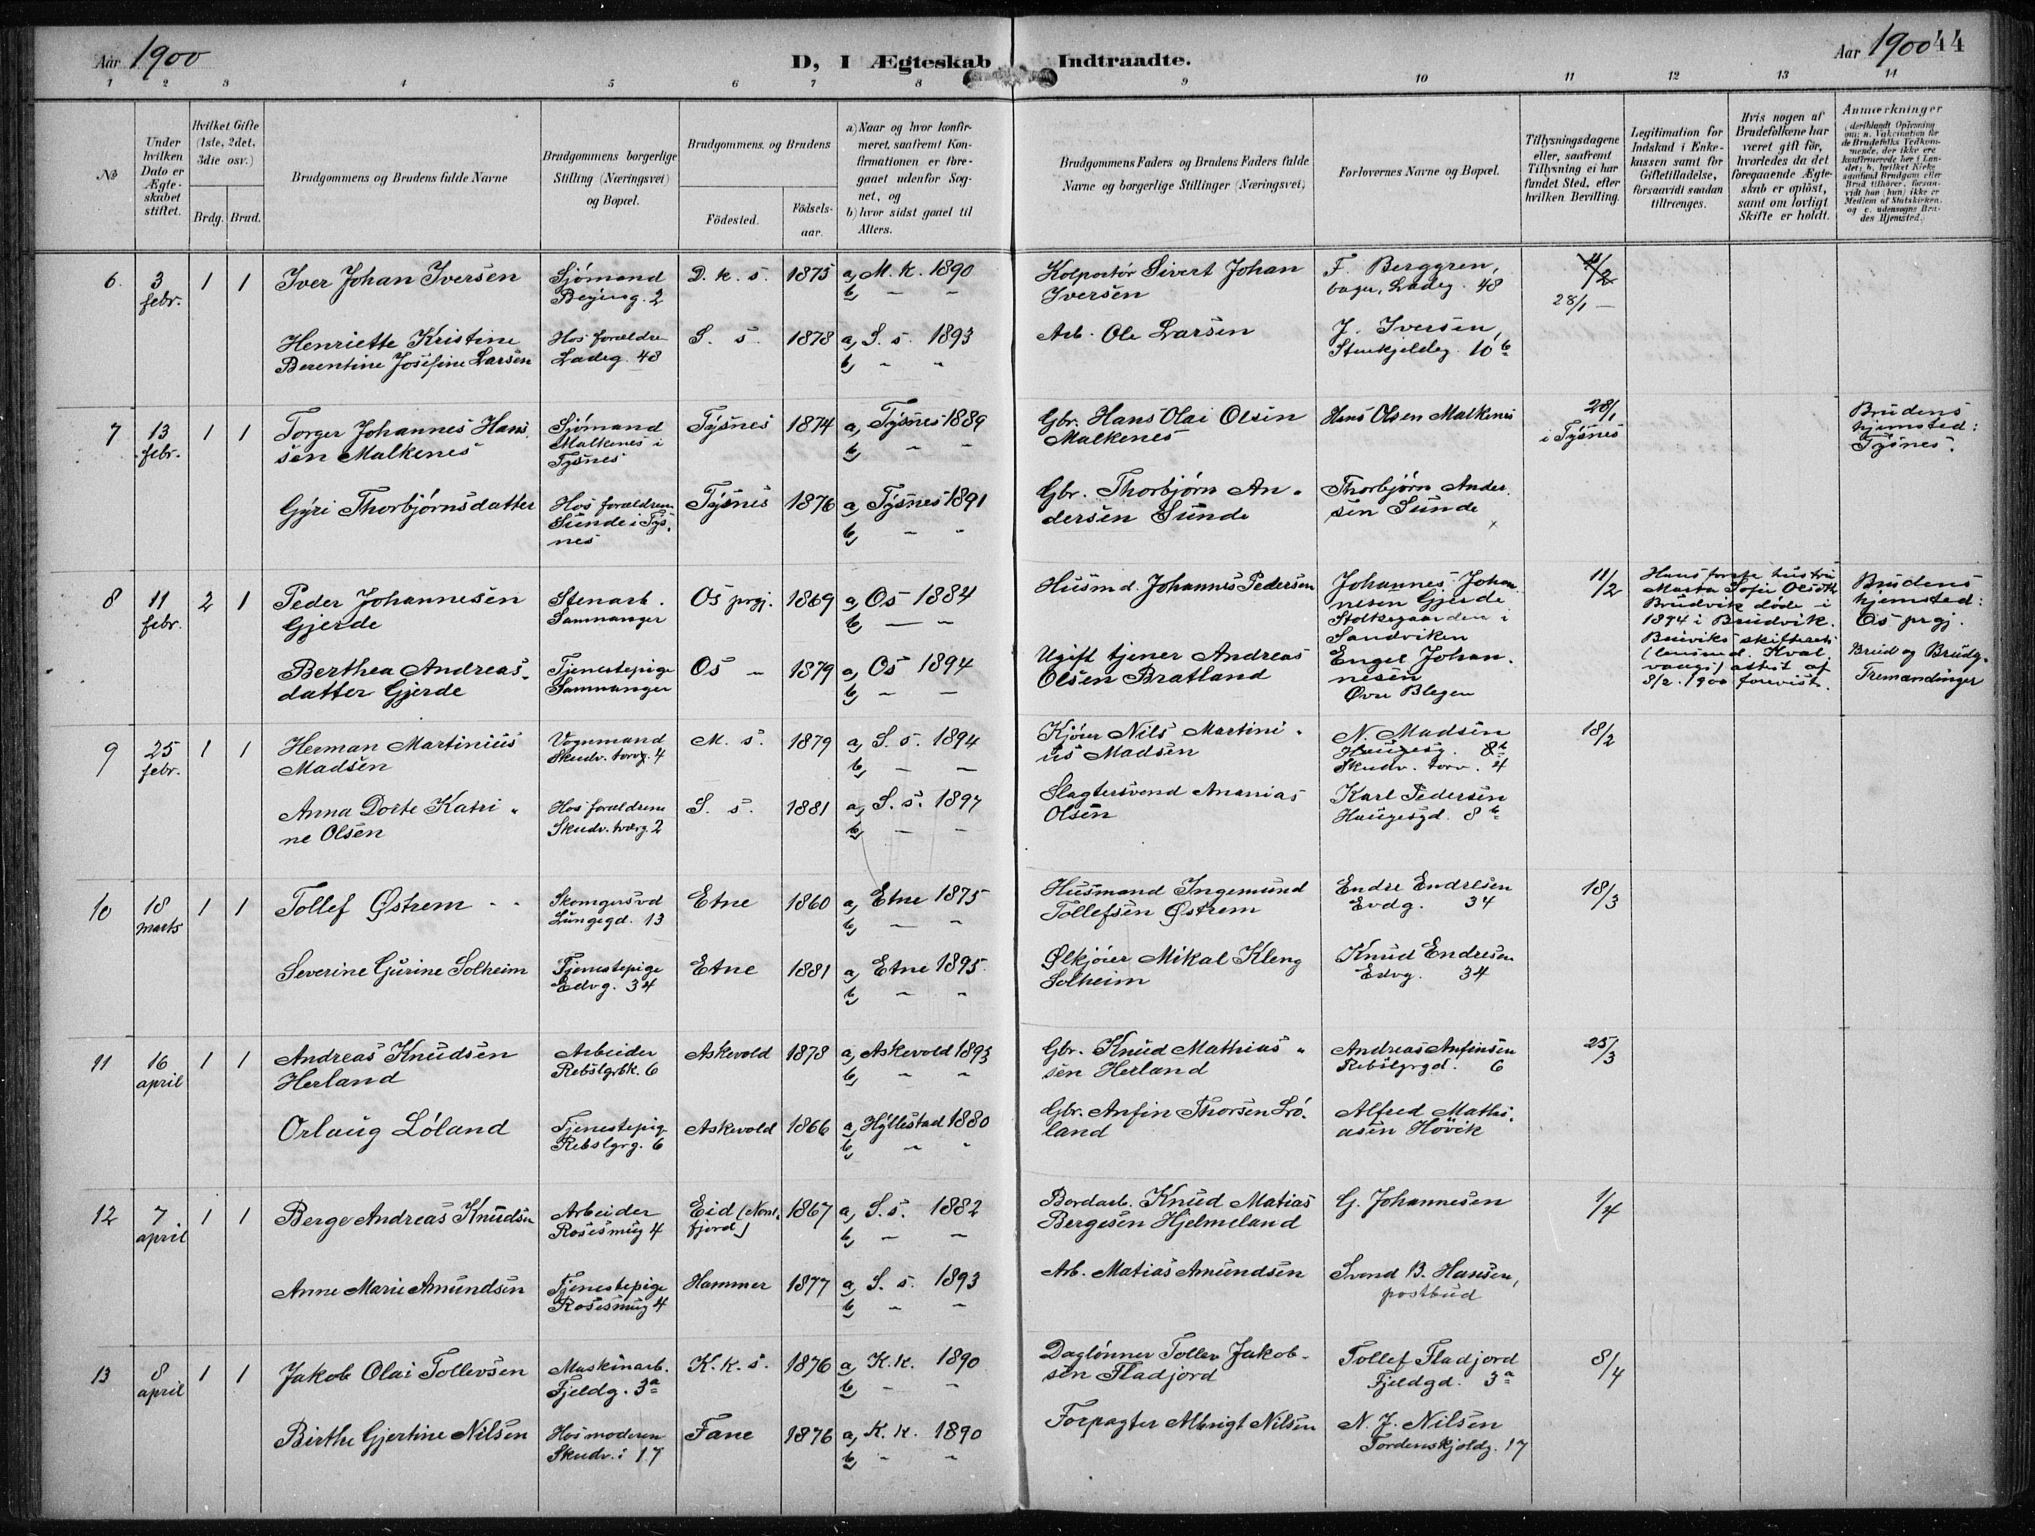 Aar 1900
D, I Ægteskab Indtraadte.
Aar 1900
44
1 2 3 4 5 6 7 8 9 10 11 12 13 14
No
Under hvilken Dato er Ægteskabet stiftet.
Hvilket Gifte (1ste, 2det, 3die osv.)
Brdg. Brud.
Brudgommens og Brudens fulde Navne
Brudgommens borgerlige Stilling (Næringsvei) og Bopæl.
Brudgommens og Brudens
Födested.
Födsels-aar.
a) Naar og hvor konfirmeret, saafremt Konfirmationen er foregaaet udenfor Sognet, og
b) hvor sidst gaaet til Alters.
Brudgommens Faders og Brudens Faders fulde Navne og borgerlige Stillinger (Næringsvei)
Forlovernes Navne og Bopæl.
Tillysningsdagene eller, saafremt Tillysning ei har fundet Sted, efter hvilken Bevilling.
Legitimation for Indskud i Enkekassen samt for Giftetilladelse, forsaavidt saadan tiltrænges.
Hvis nogen af Brudefolkene har været gift før, hvorledes da det foregaaende Ægteskab er opløst, samt om lovligt Skifte er holdt.
Anmærkninger
6. 3 febr. 1 1
Iver Johan Iversen
Sjömand
D. k. s. 1875 a, M. k. 1890
b, – –
Kolportör Sivert Johan
Iversen
F. Berggren,
bager, Ladeg. 48
4/2
28/1 –
Henriette Kristine
Berentine Josefine Larsen
Hos forældre
Ladeg. 48
S. s. 1878 a, S. s. 1893
b, – –
Arb. Ole Larsen
J. Iversen,
Stenkjeldeg. 10 b
7 13 febr. 1 1
Torger Johannes Han
sen Malkenes
Sjömand
Malkenes i
Tysnes
Tysnes 1874 a, Tysnes 1889
b, – –
Gbr. Hans Olai Olsen
Malkenes
Hans Olsen Malkenes
28/1
i Tysnes
Brudens
hjemsted:
Tysnes.
Gyri Thorbjørnsdatter
Hos forældrene
Sunde i Tys
nes
Tysnes 1876 a, Tysnes 1891
b, – –
Gbr. Thorbjørn An
dersen Sunde
Thorbjørn Ander
sen Sunde
8 11 febr. 2 1
Peder Johannesen
Gjerde
Stenarb.
Samnanger
Os prgj. 1869 a, Os 1884
b, – –
Husmd. Johannes Pedersen
Johannes Johan
nesen Gjerde
Stolkegaarden i
Sandviken
11/2
Hans første hustru
Marta Sofie Olsdtr
Brudvik døde i
1894 i Brudvik.
8/2 1900 forevist.
Brudens
hjemsted:
Os prgj.
Brud og Brudg.
Tremændinger
Berthea Andreas
datter Gjerde
Tjenestepige
Samnanger
Os – 1879 a, Os 1894
b, – –
Ugift tjener Andreas
Olsen Bratland
Engel Johan
nesen
Øvre Blegen
9 25 febr. 1 1
Herman Martinius
Madsen
Vognmand
Skudv. torvg. 4
M. s. 1879 a, S. s. 1894
b, – –
Kjöier Nils Martini
us Madsen
N. Madsen
Haugesg. 8 b
Skudv. torv. 4
18/2
Anna Dorte Katri
ne Olsen
Hos forældrene
Skudv. tværg 2
S. s. 1881 a, S. s. 1897
b, – –
Slagtersvend Ananias
Olsen
Karl Pedersen
Haugesgd. 8 b
10 18 marts 1 1
Tollef Østrem
Skomgersvd
Lungegd. 13
Etne 1860 a, Etne 1875
b, – –
Husmand Ingemund
Tollefsen Østrem
Endre Endresen
Evdg. 34
18/3
Severine Gurine Solheim
Tjenestepige
Edvg. 34
Etne 1881 a, Etne 1895.
b, – –
Ølkjöier Mikal Kleng
Solheim
Knud Endresen
Edvg. 34
11 16 april 1 1
Andreas Knudsen
Herland
Arbeider
Rebslgrbk. 6
Askevold 1878 a, Askevold 1893
b, – –
Gbr. Knud Mathias
sen Herland
Andreas Anfinsen
Rebslgrgd. 6
25/3
Orlaug Løland
Tjenestepig
Rebslgrg. 6
Askevold 1866 a, Hyllestad 1880
b, – –
Gbr. Anfin Thorsen Lö
land
Alfred Mathi
asen Hövik
12 7 april 1 1
Berge Andreas Knudsen
Arbeider
Rosesmug 4
Eid (Nord
fjord) 1867 a, S. s. 1882
b, – –
Bordarb. Knud Matias
Bergesen Hjelmeland
G. Johannesen
1/4
Anne Marie Amundsen
Tjenestepige
Rosesmug 4
Hammer 1877 a, S. s. 1893
b, – –
Arb. Matias Amundsen
Svend B. Hansen,
postbud
13 8 april 1 1
Jakob Olai Tollevsen
Maskinarb.
Fjeldg. 3a
K. k. s. 1876 a, K. k. 1890
b, – –
Daglønner Tollev Jakob
sen Fladjord
Tollef Fladjord
Fjeldgd. 3a
8/4
Birthe Gjertine Nilsen
Hos moderen
Skudv. i 17
Fane 1876 a, K. k. 1890
b, – –
Forpagter Albrigt Nilsen
N. J. Nilsen
Tordenskjoldg. 17